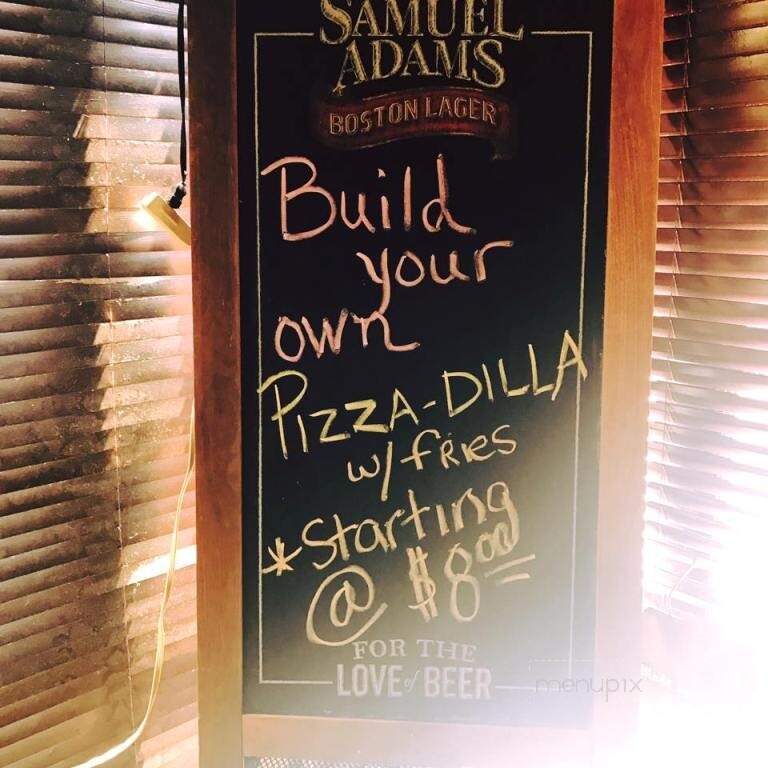 SAMUEL
ADAMS
BOSTON LAGER
Build
your
own
PIZZA-DILLA
w/ fRies
*Starting
@ $8.00
FOR THE
LOVE of BEER
menupix